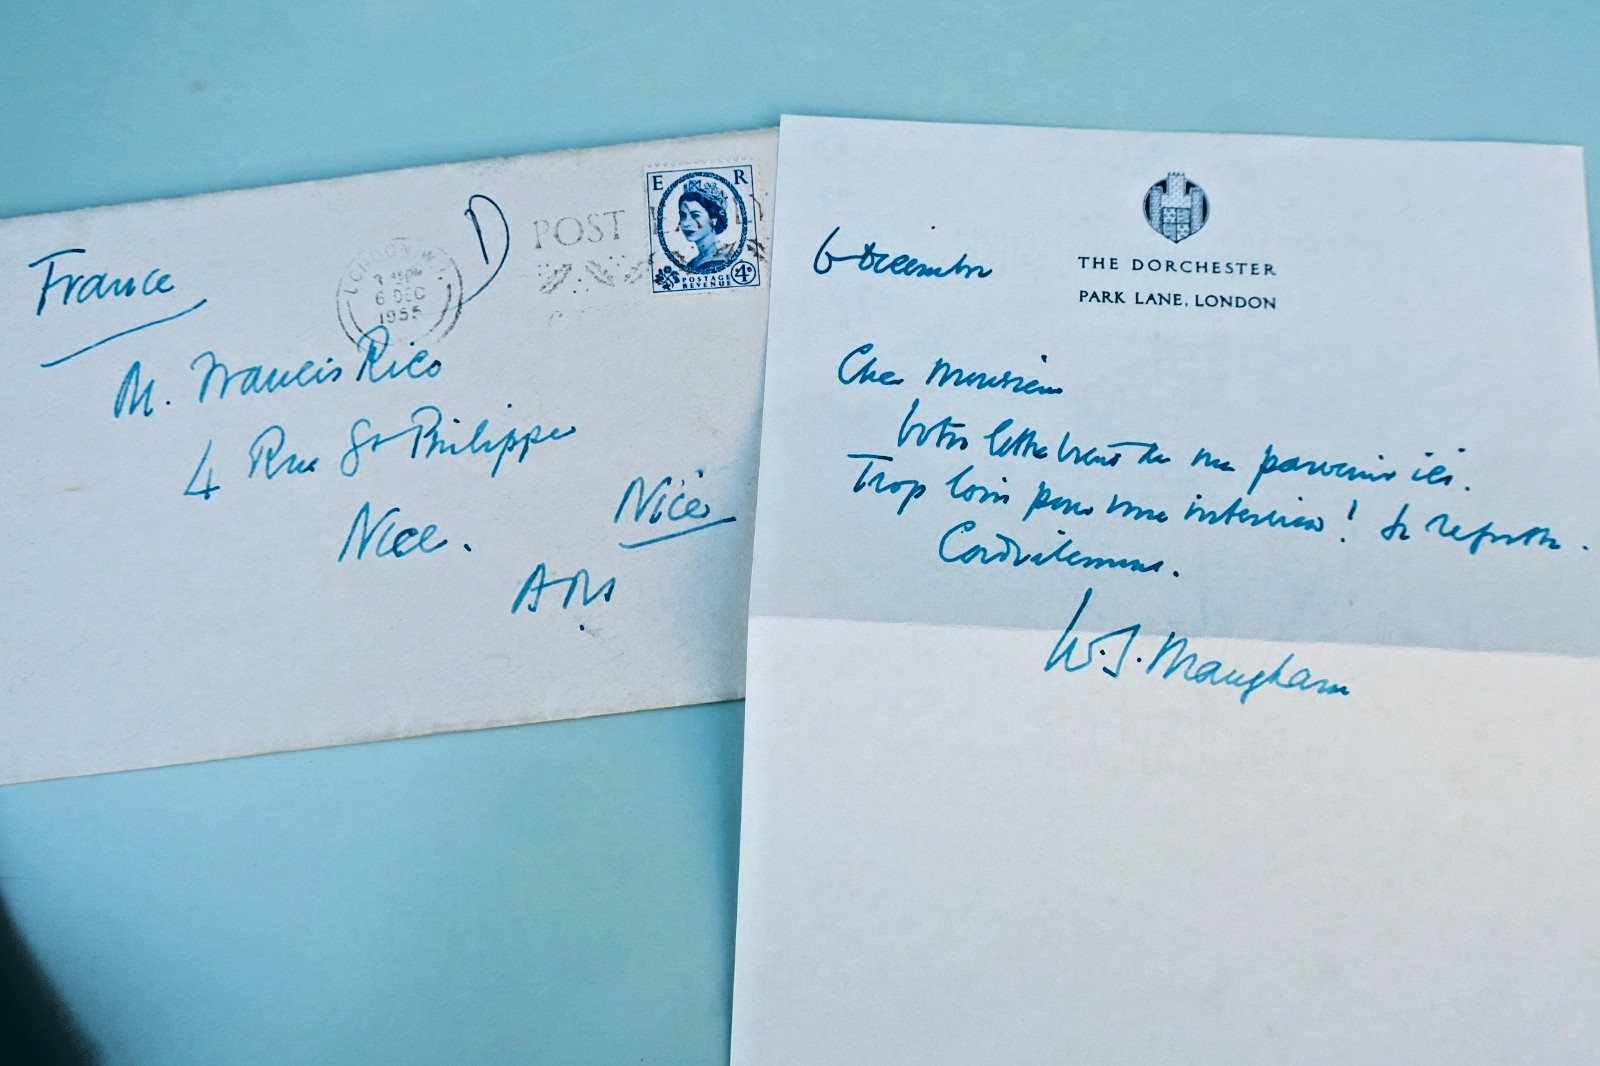 France
M. Francis Rico
4 Rue St Philippe
Nice.
Nice
A M
D
LONDON W.1.
3 45PM
6 DEC
1955
POST EARLY
E R
POSTAGE
REVENUE
4D
THE DORCHESTER
PARK LANE, LONDON
6 December
Cher Monsieur
Votre lettre vient de me parvenir ici.
Trop loin pour une interview! Je regrette.
Cordialement.
W.S. Maugham